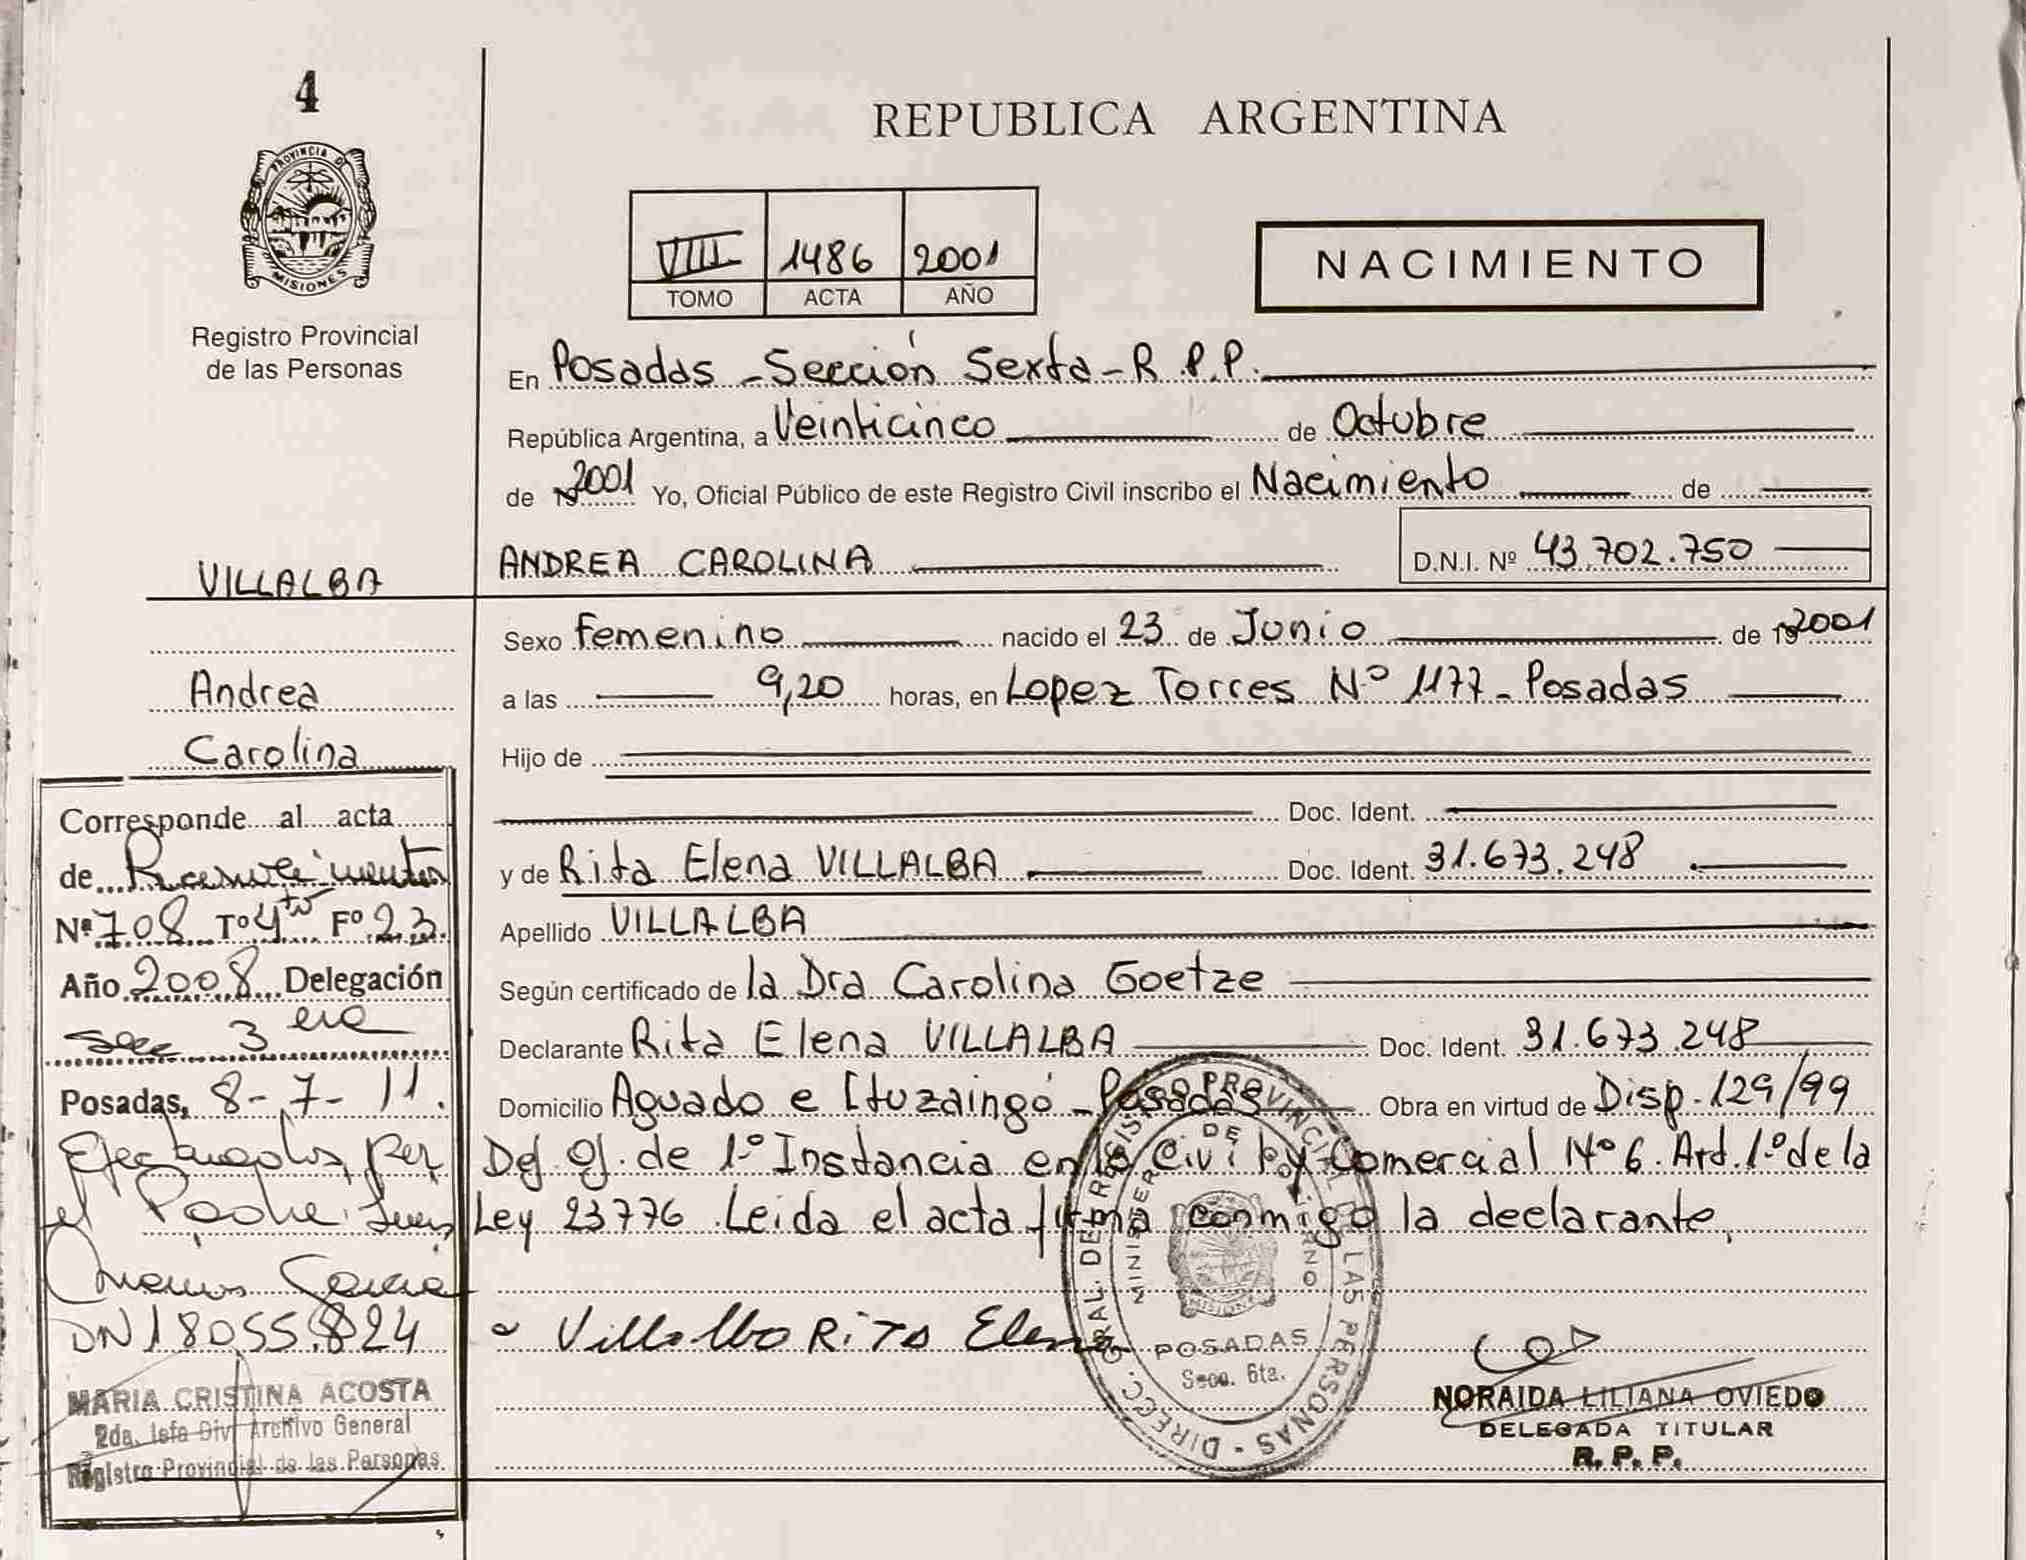 4
REPUBLICA ARGENTINA
PROVINCIA DE
MISIONES
Registro Provincial
de las Personas
VIII 1486 2001
TOMO ACTA AÑO
NACIMIENTO
En Posadas - Sección Sexta - R.P.P.
República Argentina, a Veinticinco de Octubre
de 2001 Yo, Oficial Público de este Registro Civil inscribo el Nacimiento de
VILLALBA
ANDREA CAROLINA D.N.I. Nº 43.702.750
Sexo Femenino nacido el 23 de Junio de 19 2001
Andrea
a las 9,20 horas, en Lopez Torres Nº 1177 - Posadas
Carolina
Hijo de
Doc. Ident.
y de Rita Elena VILLALBA Doc. Ident. 31.673.248
Apellido VILLALBA
Según certificado de la Dra Carolina Goetze
Declarante Rita Elena VILLALBA Doc. Ident. 31.673.248
Domicilio Aguado e Ituzaingó - Posadas Obra en virtud de Disp. 129/99
Def. Of. de 1º Instancia en lo Civil y Comercial Nº 6. Art. 1º de la
Ley 23776. Leida el acta firma conmigo la declarante,
Villalba Rita Elena
NORAIDA LILIANA OVIEDO
DELEGADA TITULAR
R. P. P.
DIRECC. GRAL. DE REGISTRO PROVINCIAL DE LAS PERSONAS
MINISTERIO DE GOBIERNO
MISIONES
POSADAS
Secc. 6ta.
Corresponde al acta
de Reconocimientos
Nº 708 Tº 4to Fº 23.
Año 2008 Delegación
Secc 3era
Posadas, 8-7-11.
Efectuados, por
el Padre:
Garcia
DNI 18055.824
MARIA CRISTINA ACOSTA
2da. Jefa Div. Archivo General
Registro Provincial de las Personas